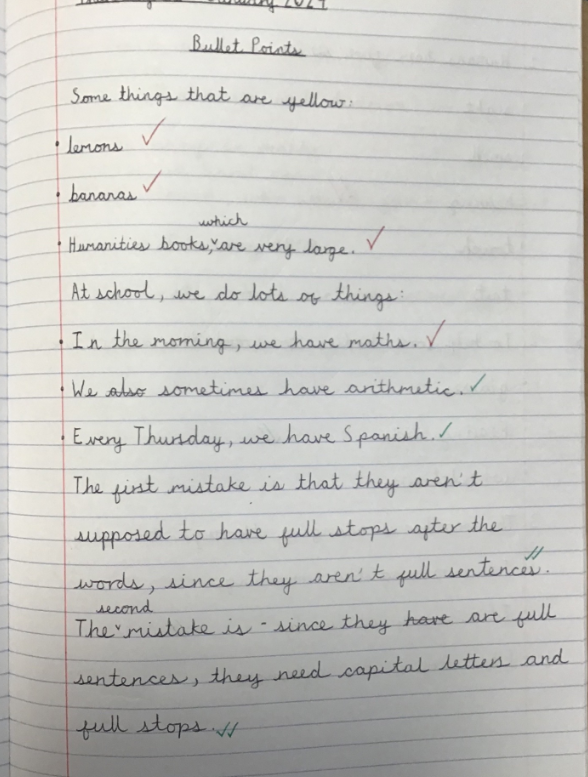 January 2024
Bullet Points
Some things that are yellow:
• lemons
• bananas
which
• Humanities books, are very large.
At school, we do lots of things:
• In the morning, we have maths.
• We also sometimes have arithmetic.
• Every Thursday, we have Spanish.
The first mistake is that they aren't
supposed to have full stops after the
words, since they aren't full sentences.
second
The mistake is - since they have are full
sentences, they need capital letters and
full stops.